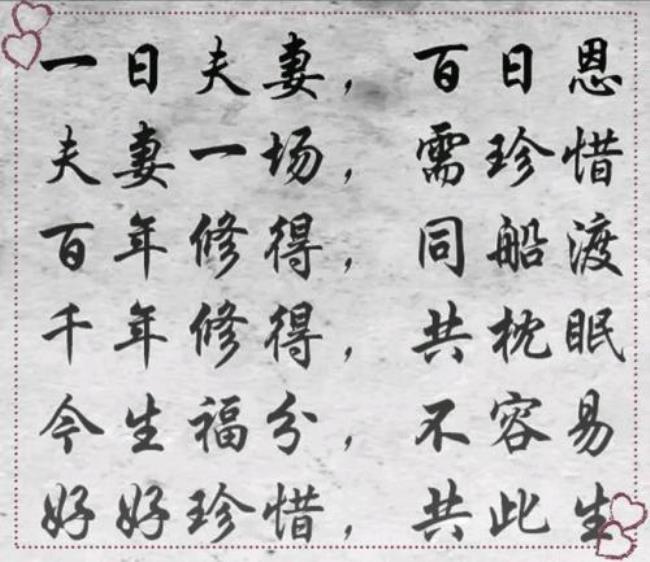 一日夫妻，百日恩
夫妻一场，需珍惜
百年修得，同船渡
千年修得，共枕眠
今生福分，不容易
好好珍惜，共此生